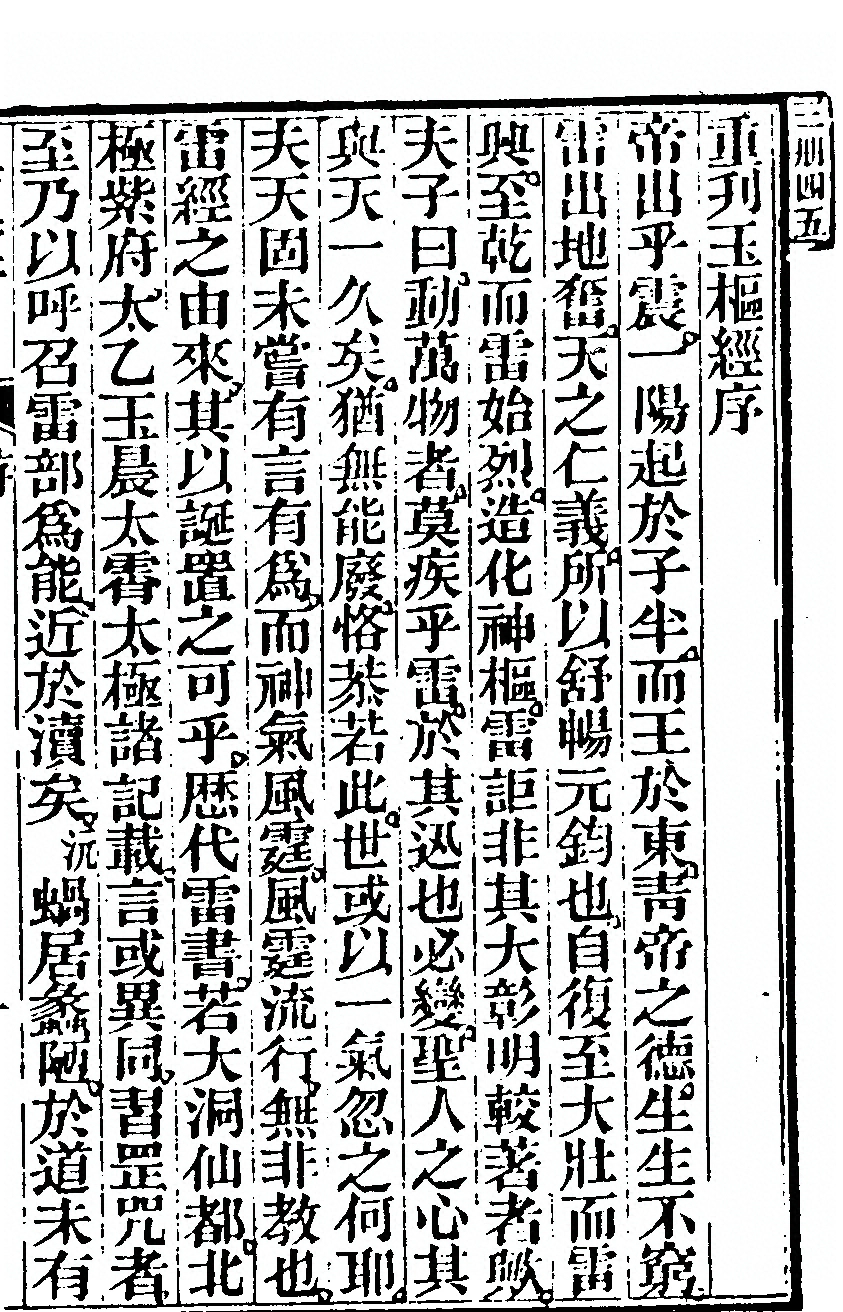 三册四五
重刊玉樞經序
帝出乎震一陽起於子半而王於東靑帝之德生生不窮
雷出地奮天之仁義所以舒暢元鈞也自復至大壯而雷
興至乾而雷始烈造化神樞雷詎非其大彰明較著者歟
夫子曰動萬物者莫疾乎雷於其迅也必變聖人之心其
與天一久矣猶無能廢恪恭若此世或以一氣忽之何耶
夫天固未嘗有言有爲而神氣風霆風霆流行無非教也
雷經之由來其以誕置之可乎歷代雷書若大洞仙都北
極紫府太乙玉晨太霄太極諸記載言或異同習罡咒者
至乃以呼召雷部爲能近於瀆矣沅蝸居蠡陋於道未有